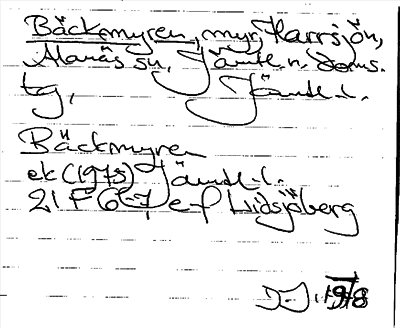 Bäckmyren, myr, Harrsjön,
Alanäs sn, Jämtl. n. doms.
tg, Jämtl. l.
Bäckmyren
ek (1975) Jämtl. l.
21 F 6-7, e-f Lidsjöberg
1978